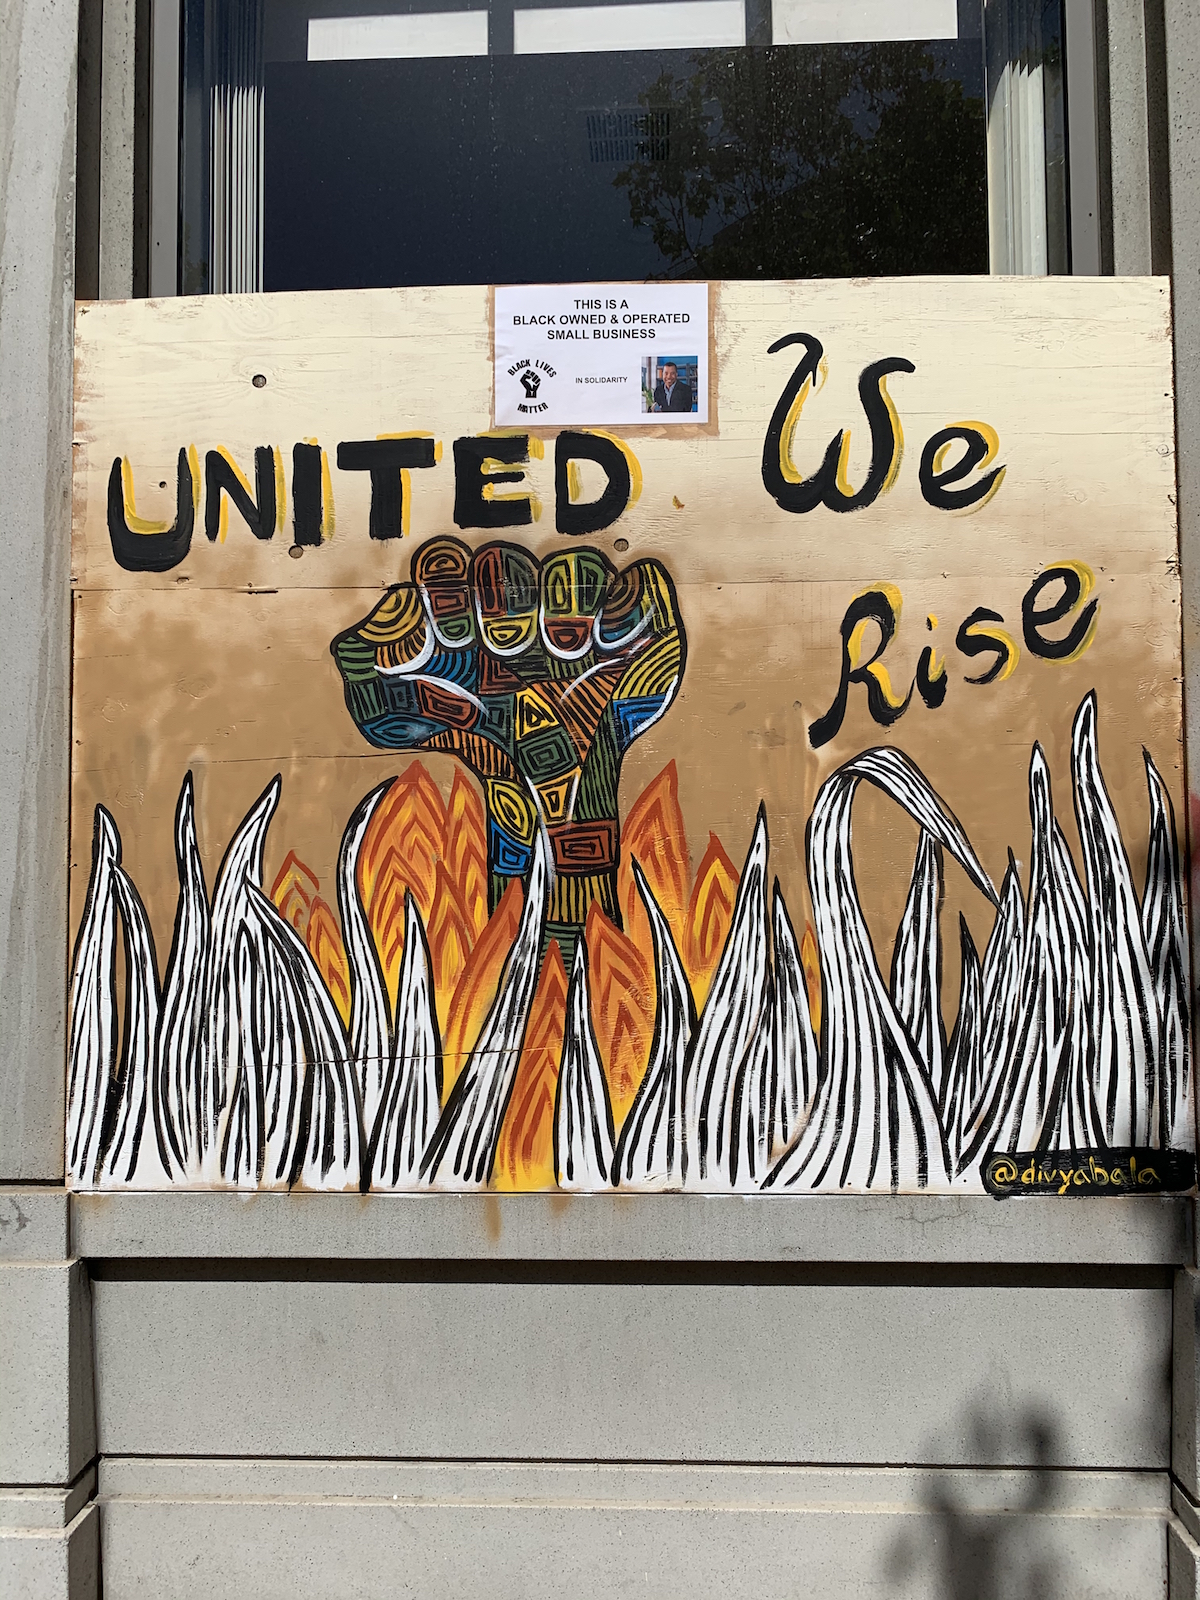 THIS IS A
BLACK OWNED & OPERATED
SMALL BUSINESS
BLACK LIVES
MATTER
IN SOLIDARITY
UNITED We
Rise
@divyabala